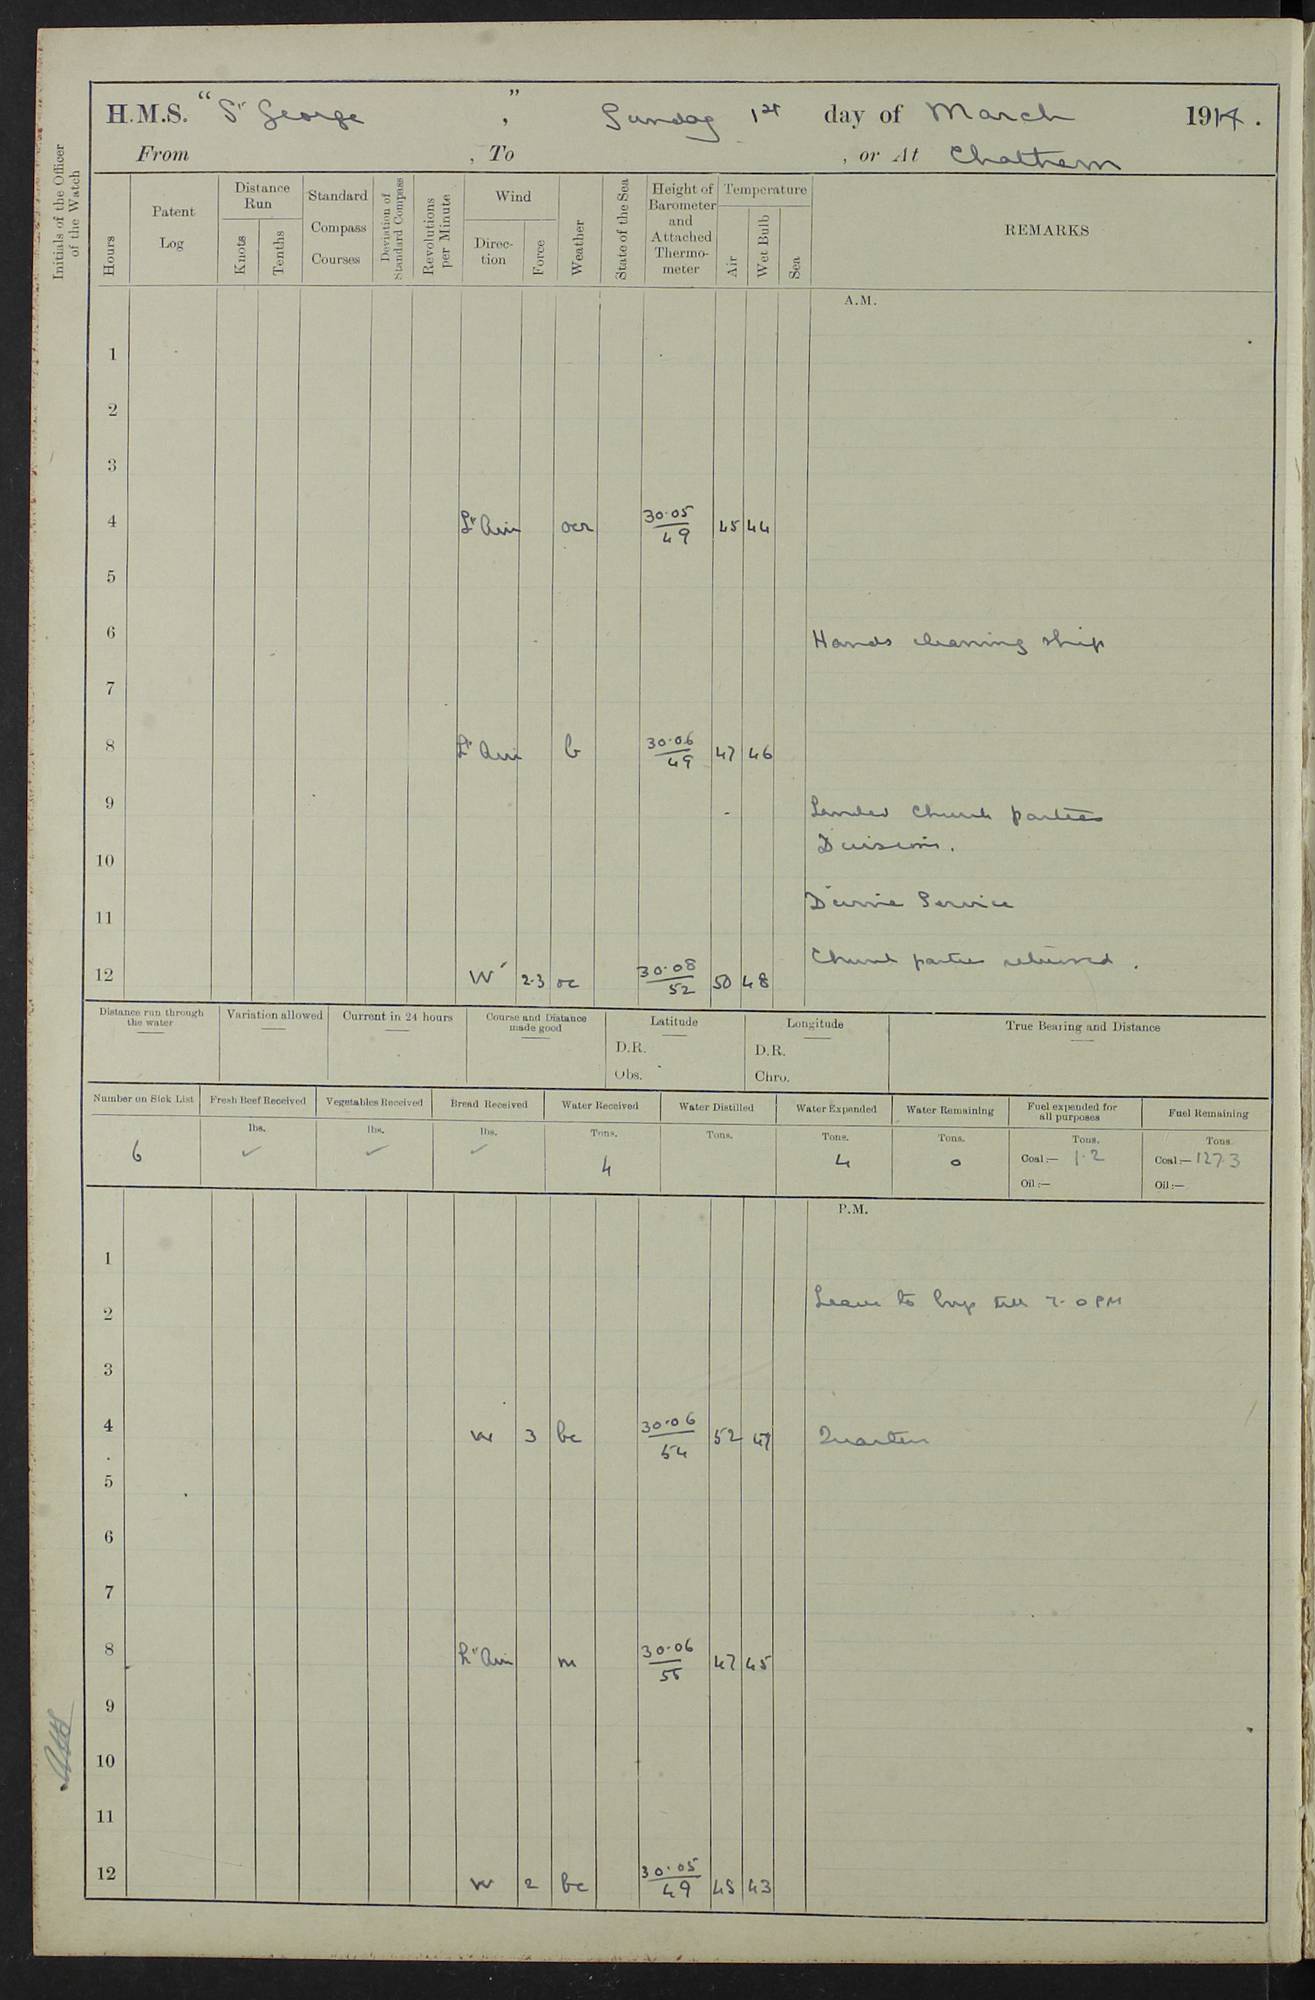 H.M.S. "St George", Sunday 1st day of March 1914.
From , To , or At Chatham
Initials of the Officer of the Watch
Hours
Patent Log
Distance Run
Knots
Tenths
Standard Compass Courses
Deviation of Standard Compass
Revolutions per Minute
Wind
Direction
Force
Weather
State of the Sea
Height of Barometer and Attached Thermometer
Temperature
Air
Wet Bulb
Sea
REMARKS
A.M.
1
2
3
4 Lt Air ocr 30.05/49 45 44
5
6 Hands cleaning ship
7
8 Lt Air b 30.06/49 47 46
9 Landed Church parties
Divisions.
10
11 Divine Service
Church parties returned.
12 W 2-3 oc 30.08/52 50 48
Distance run through the water
Variation allowed
Current in 24 hours
Course and Distance made good
Latitude
D.R.
Obs.
Longitude
D.R.
Chro.
True Bearing and Distance
Number on Sick List
6
Fresh Beef Received
lbs.
✓
Vegetables Received
lbs.
✓
Bread Received
lbs.
✓
Water Received
Tons.
4
Water Distilled
Tons.
Water Expended
Tons.
4
Water Remaining
Tons.
0
Fuel expended for all purposes
Tons.
Coal:— 1.2
Oil:—
Fuel Remaining
Tons
Coal:— 127.3
Oil:—
P.M.
1
2 Leave to boys till 7.0 PM
3
4 W 3 bc 30.06/54 52 47 Quarters
5
6
7
8 Lt Air m 30.06/55 47 45
9
10
11
12 W 2 bc 30.05/49 45 43